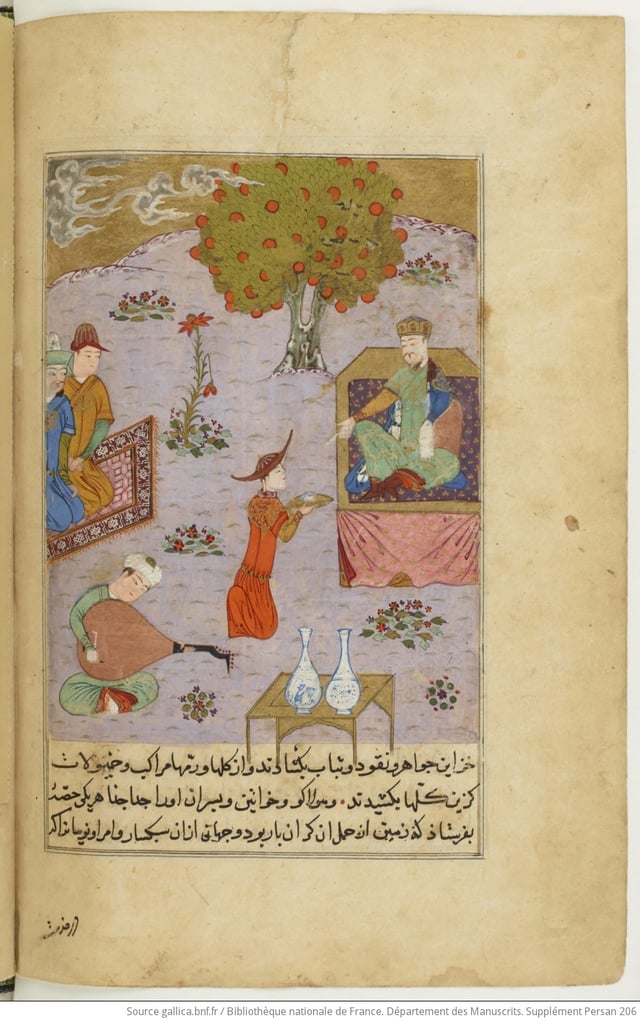 خزاین جواهر و نقود و ثیاب بکشادند و از کلها و رمها مراکب و خیولات
کزین کلها بکشیدند و هولاکو و خواتین و پسران او را جدا جدا هر یکی حصه
بفرستاد که زمین از حمل ان کران بار بود و جهاتی از ان سبکسار و امرا و نویینان
Source gallica.bnf.fr / Bibliothèque nationale de France. Département des Manuscrits. Supplément Persan 206